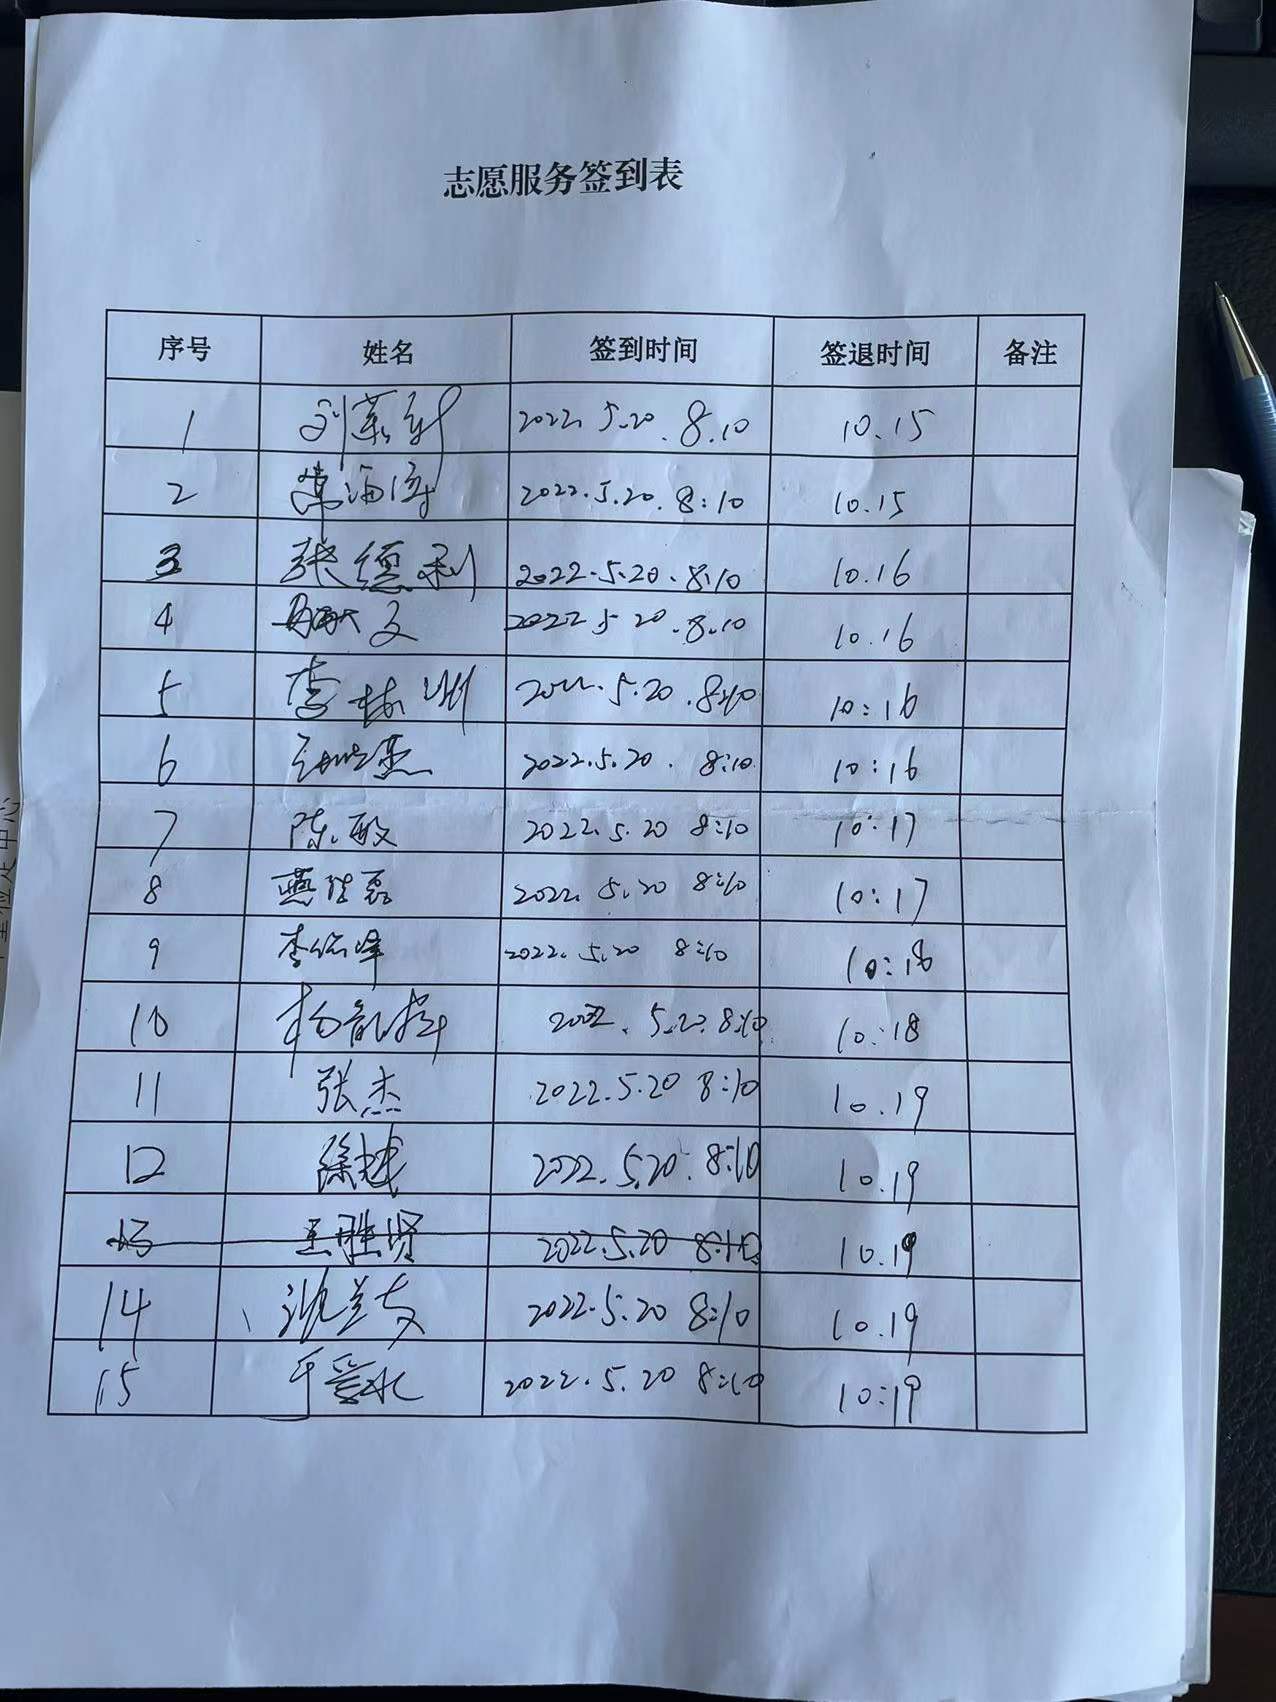 志愿服务签到表
序号 姓名 签到时间 签退时间 备注
1 2022.5.20.8.10 10.15
2 2022.5.20.8:10 10.15
3 张德利 2022.5.20.8:10 10.16
4 2022 5 20.8.10 10.16
5 李林洲 2022.5.20.8:10 10:16
6 2022.5.20.8:10 10:16
7 陈敏 2022.5.20 8:10 10:17
8 燕 磊 2022.5.20 8:10 10:17
9 李 峰 2022.5.20 8:10 10:18
10 杨 2022.5.20.8:10 10:18
11 张杰 2022.5.20 8:10 10.19
12 徐斌 2022.5.20.8:10 10.19
13 王胜贤 2022.5.20 8:10 10.19
14 沈兰友 2022.5.20 8:10 10.19
15 于爱水 2022.5.20 8:10 10:19